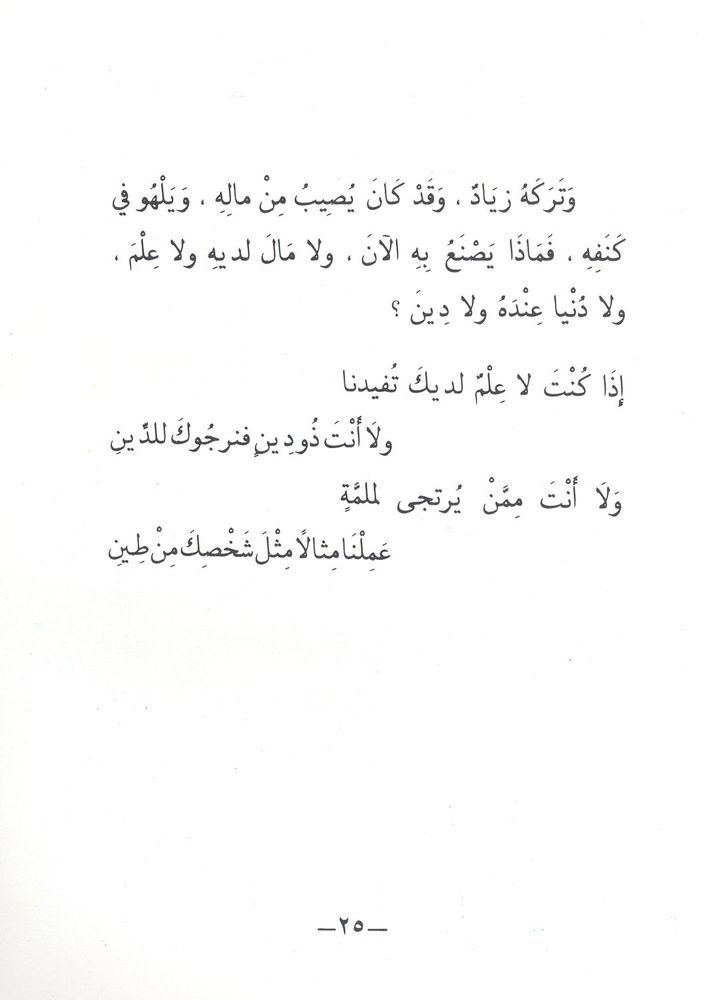 وَتَرَكَهُ زيَادٌ ، وَقَدْ كَانَ يُصِيبُ مِنْ مالِهِ ، وَيَلْهُو في
كَنَفِهِ ، فَمَاذَا يَصْنَعُ بِهِ الآنَ ، ولا مَالَ لديهِ ولا عِلْمَ ،
ولا دُنْيا عِنْدَهُ ولا دِينَ ؟
إِذَا كُنْتَ لا عِلْمٌ لديكَ تُفيدنا
ولَا أَنْتَ ذُو دِينٍ فنرجُوكَ للدِّينِ
وَلَا أَنْتَ مِمَّنْ يُرتجى لملمَّةٍ
عَمِلْنَا مِثالًا مِثْلَ شَخْصِكَ مِنْ طِينِ
—٢٥—